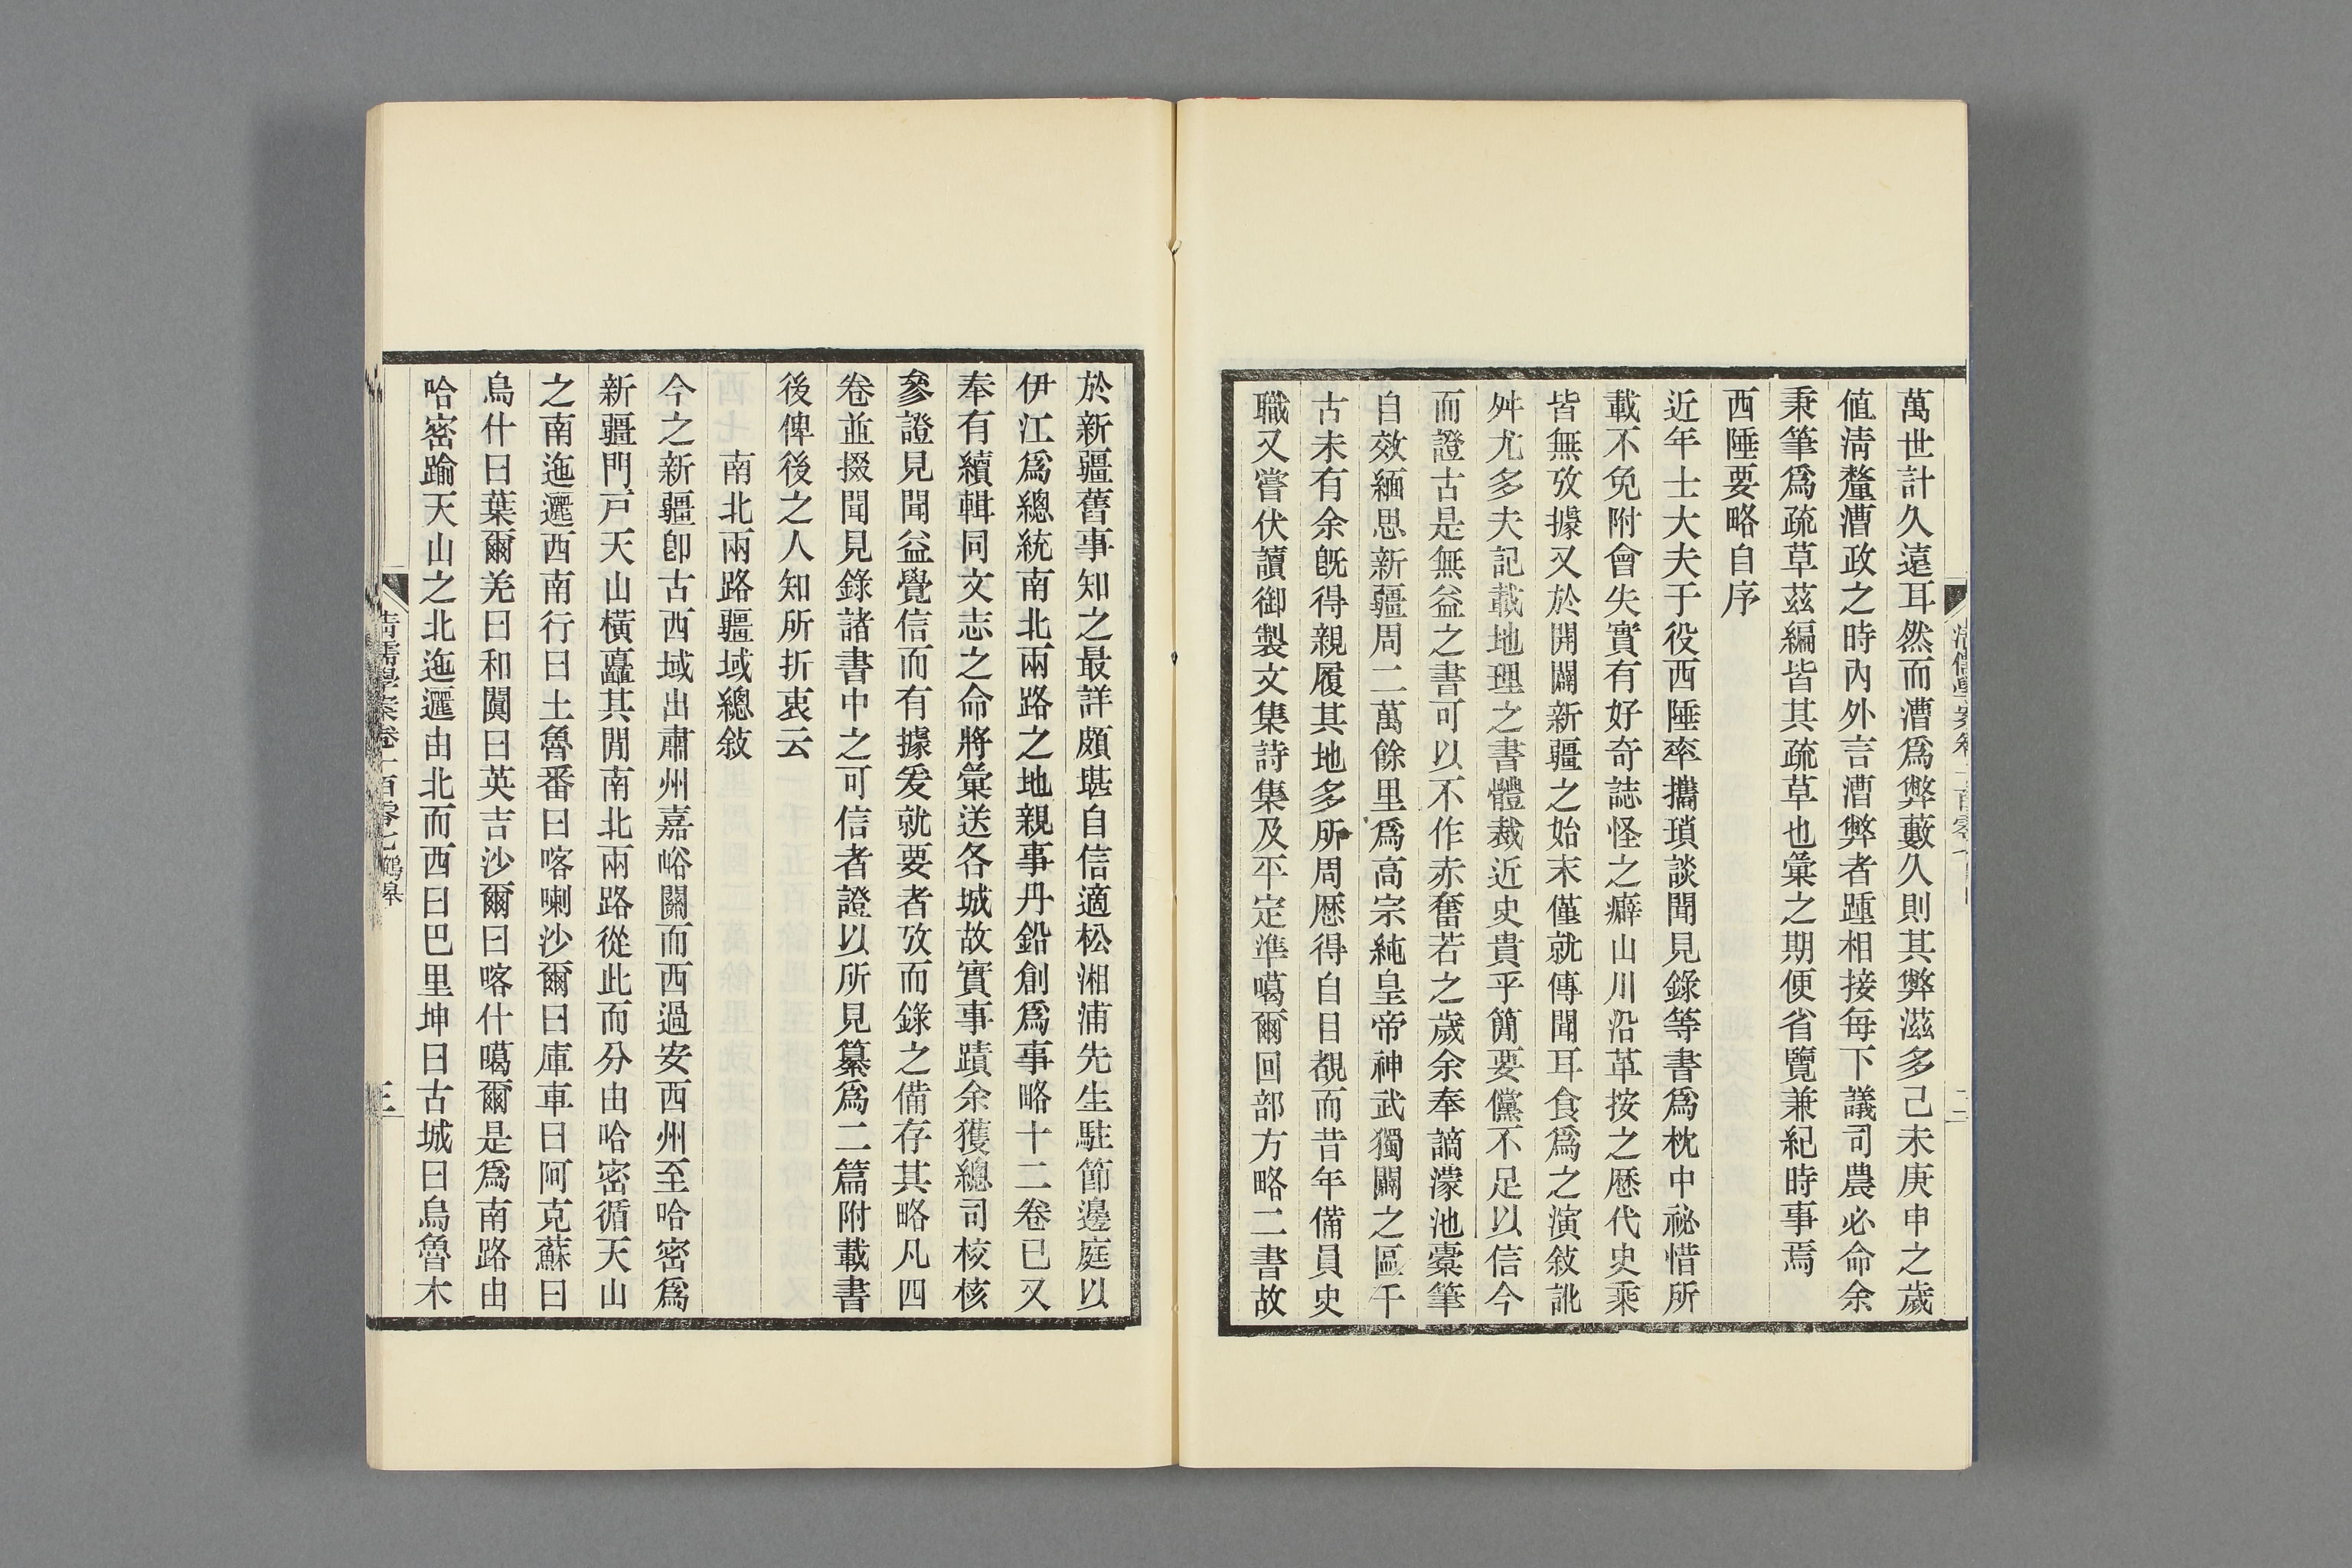 萬世計久遠耳然而漕爲弊藪久則其弊滋多己未庚申之歲
値淸釐漕政之時內外言漕弊者踵相接每下議司農必命余
秉筆爲疏草茲編皆其疏草也彙之期便省覽兼紀時事焉
西陲要略自序
近年士大夫于役西陲率攜瑣談聞見錄等書爲枕中祕惜所
載不免附會失實有好奇誌怪之癖山川沿革按之歷代史乘
皆無攷據又於開闢新疆之始末僅就傳聞耳食爲之演敘訛
舛尤多夫記載地理之書體裁近史貴乎簡要儻不足以信今
而證古是無益之書可以不作赤奮若之歲余奉謫濛池櫜筆
自效緬思新疆周二萬餘里爲高宗純皇帝神武獨闢之區千
古未有余旣得親履其地多所周歷得自目覩而昔年備員史
職又嘗伏讀御製文集詩集及平定準噶爾回部方略二書故
於新疆舊事知之最詳頗堪自信適松湘浦先生駐節邊庭以
伊江爲總統南北兩路之地親事丹鉛創爲事略十二卷已又
奉有續輯同文志之命將彙送各城故實事蹟余獲總司校核
參證見聞益覺信而有據爰就要者攷而錄之備存其略凡四
卷並掇聞見錄諸書中之可信者證以所見纂爲二篇附載書
後俾後之人知所折衷云
南北兩路疆域總敍
今之新疆卽古西域出肅州嘉峪關而西過安西州至哈密爲
新疆門戸天山橫矗其閒南北兩路從此而分由哈密循天山
之南迤邐西南行曰土魯番曰喀喇沙爾曰庫車曰阿克蘇曰
烏什曰葉爾羌曰和闐曰英吉沙爾曰喀什噶爾是爲南路由
哈密踰天山之北迤邐由北而西曰巴里坤曰古城曰烏魯木
清儒學案卷一百零七 鶴皋
三